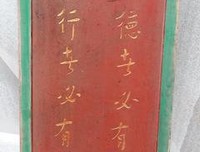 德者必有
行者必有